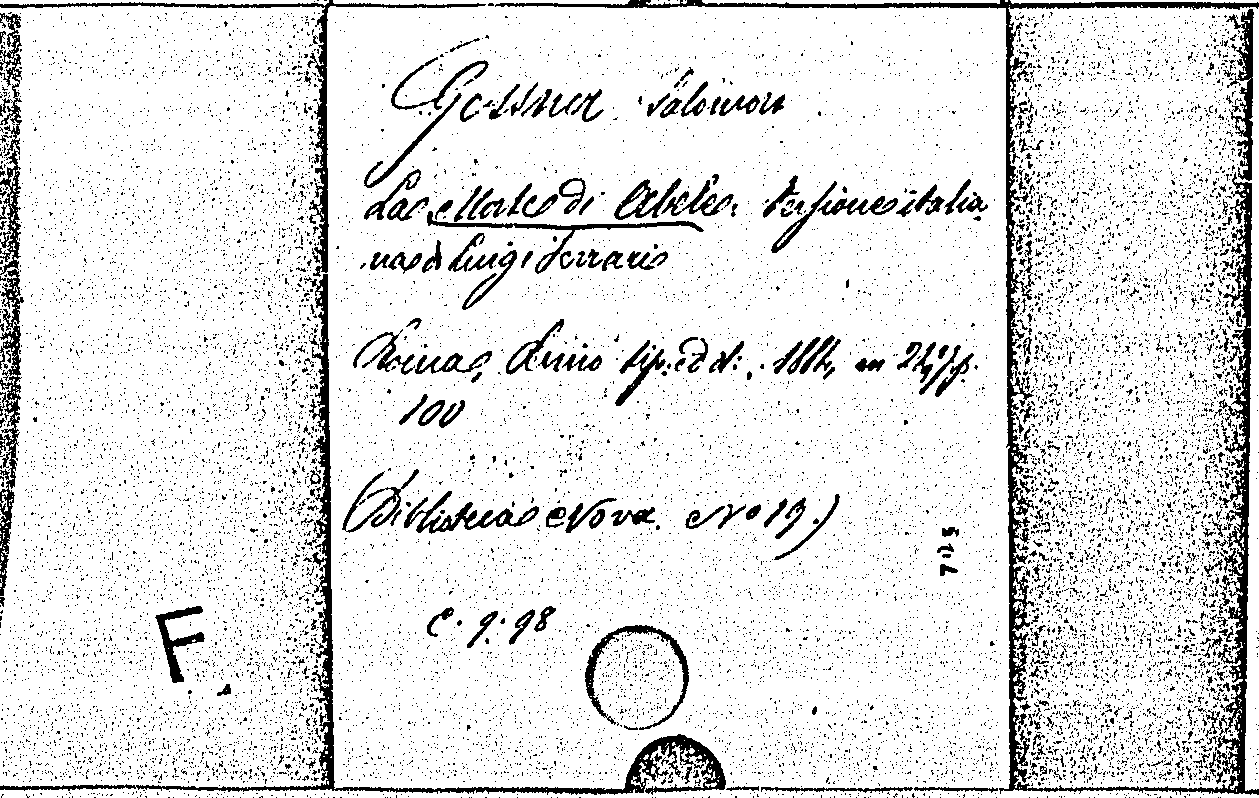 Gessner Salomon
La Morte di Abele. Versione italia
na di Luigi Ferrari
Roma, Perino tip. ed. 1884, in 24°, p.
100
(Biblioteca Nova. No 19.)
C. 9. 98
F.